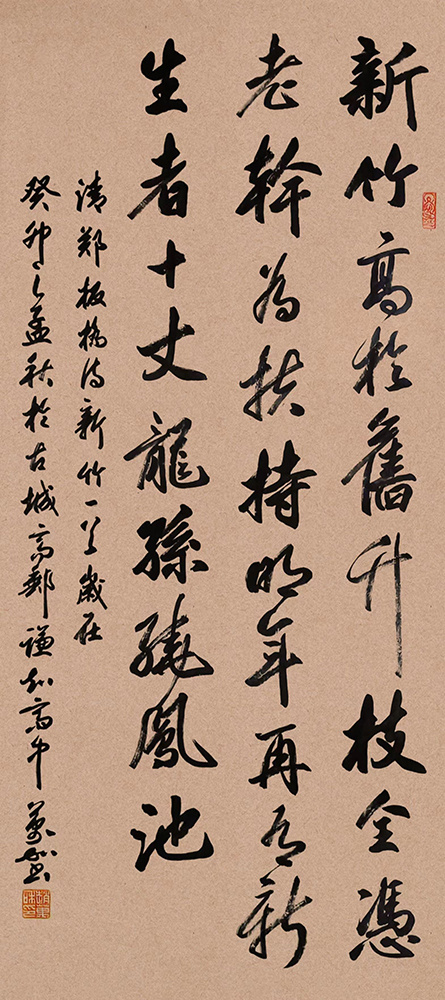 新竹高於舊竹枝全憑
老幹為扶持明年再有新
生者十丈龍孫繞鳳池
清鄭板橋詩新竹一首歲在
癸卯之孟秋於古城高郵謙和